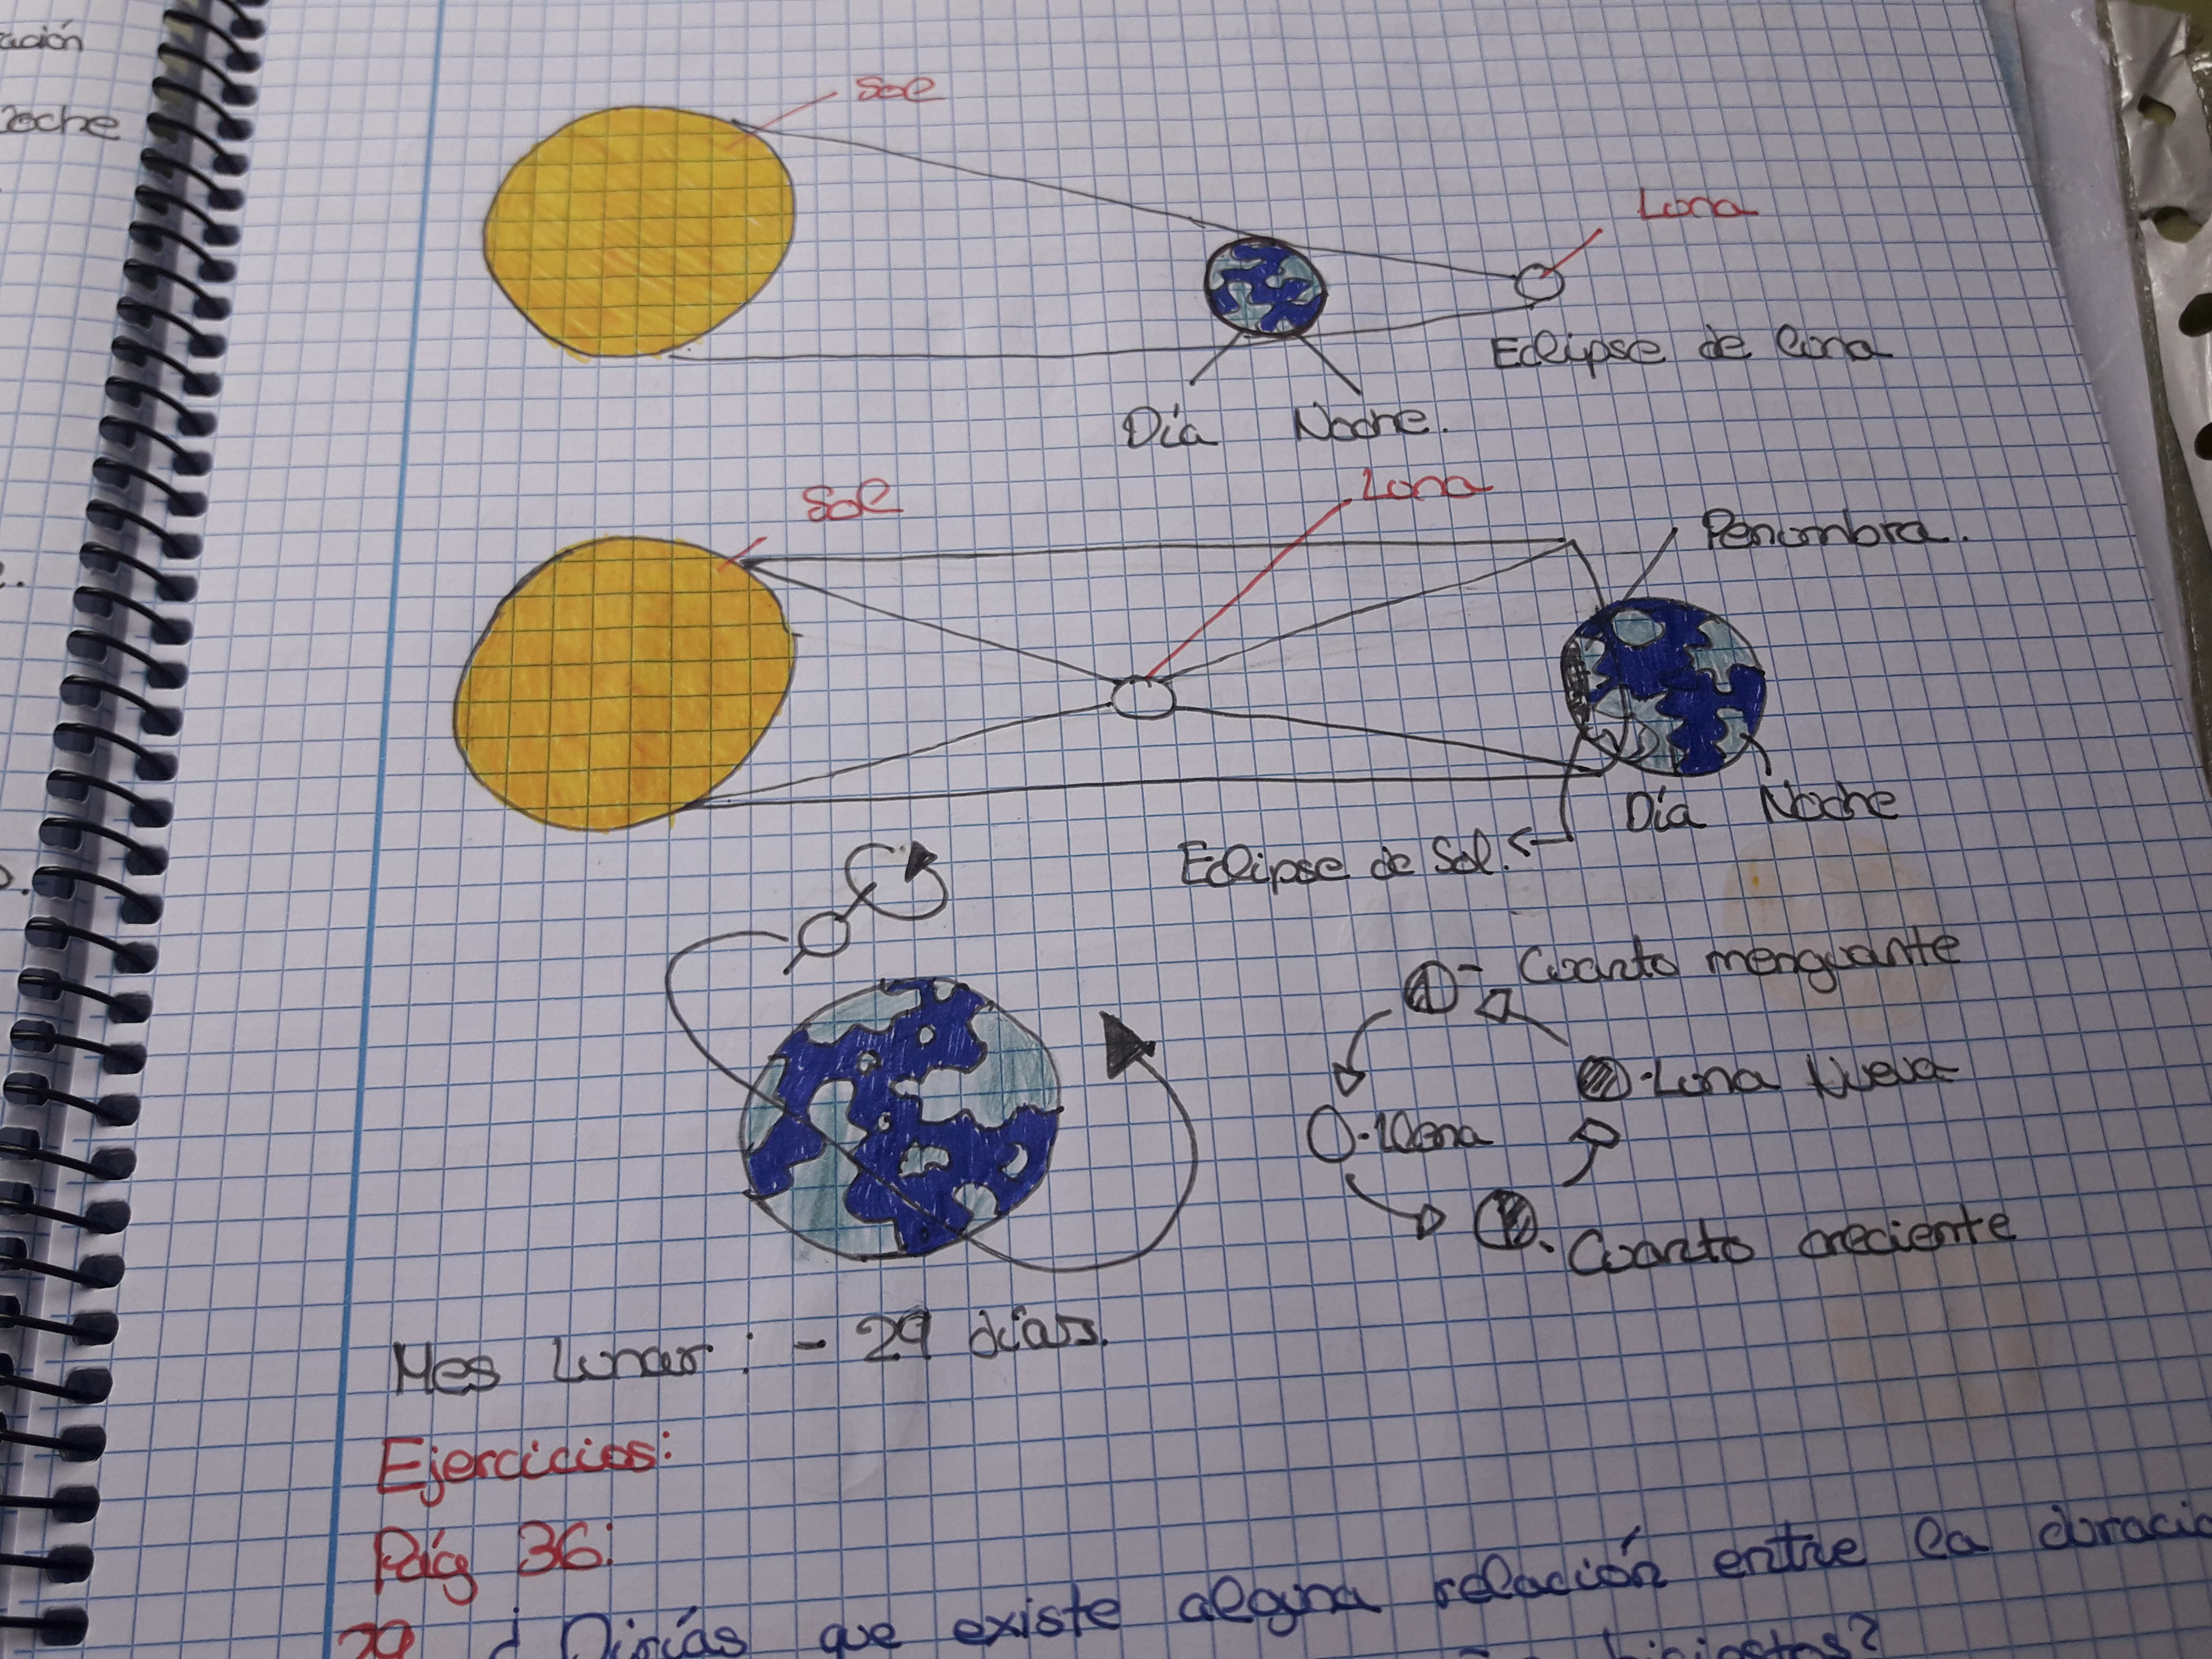 ación
noche
Sol
Luna
Eclipse de luna
Día Noche.
Sol
Luna
Penumbra.
Día Noche
Eclipse de Sol.
Cuarto menguante
Luna Nueva
Llena
Cuarto creciente
Mes Lunar: - 29 días.
Ejercicios:
Pág 36:
29 ¿Dirías que existe alguna relación entre la duració
bisiestos?